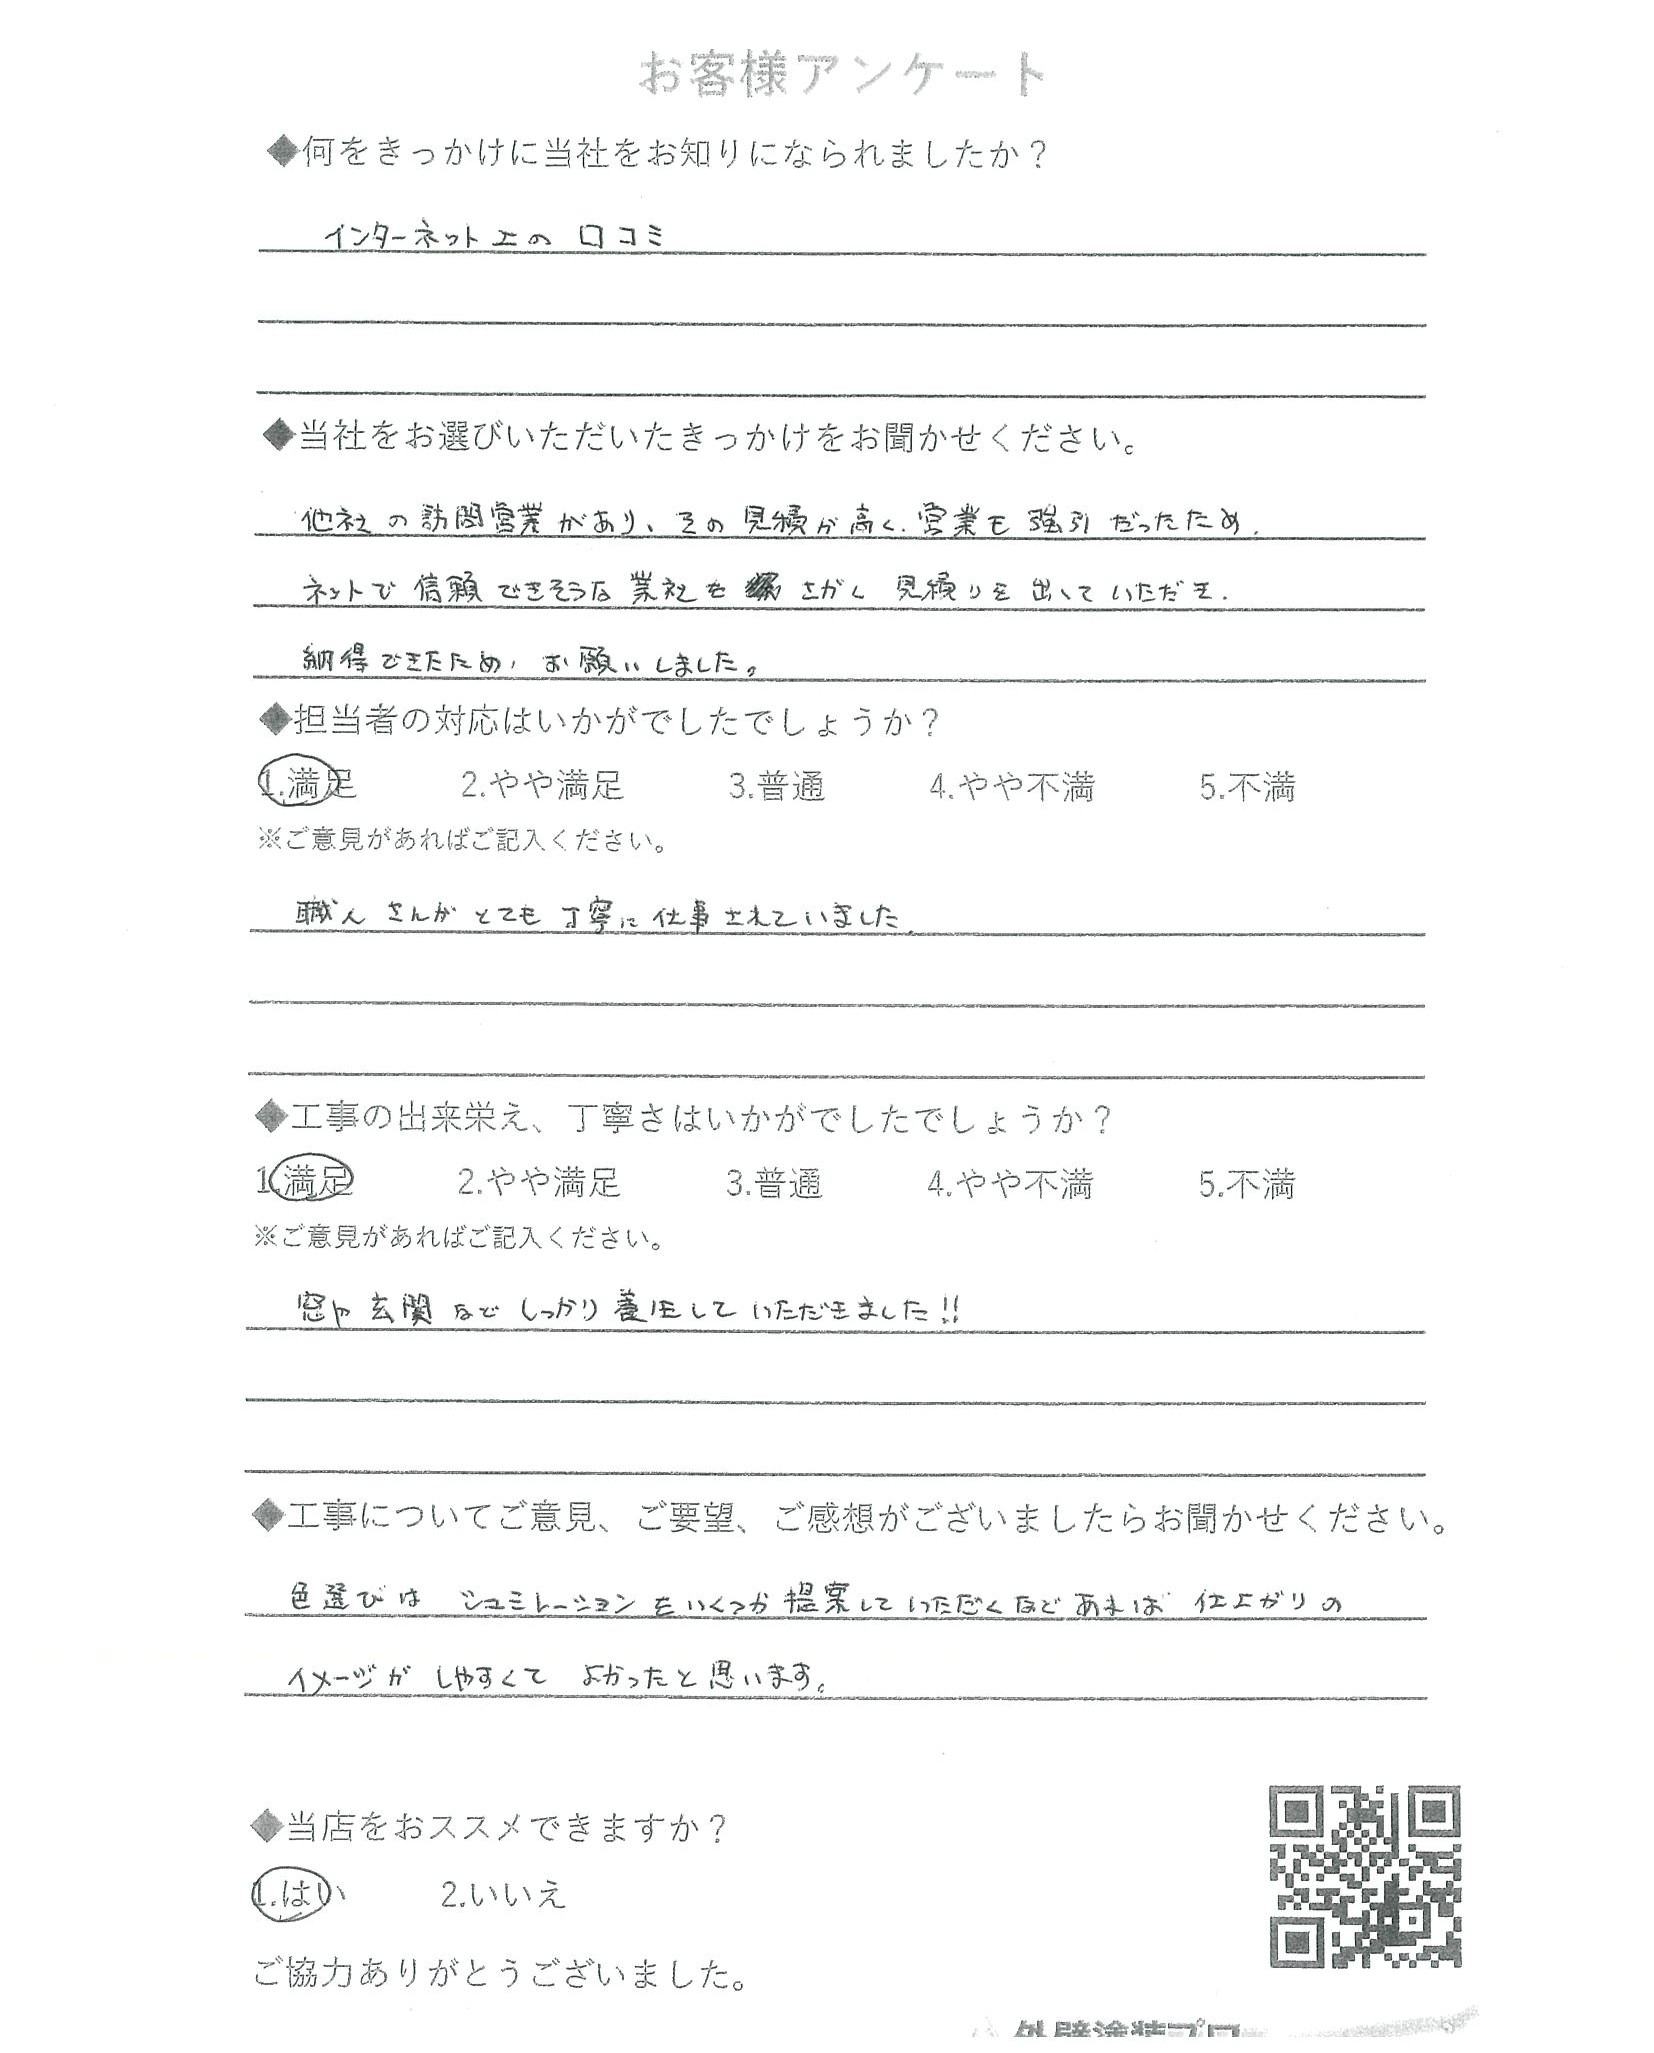 お客様アンケート
◆何をきっかけに当社をお知りになられましたか？
インターネット上の 口コミ
◆当社をお選びいただいたきっかけをお聞かせください。
他社の訪問営業があり、その見積が高く、営業も強引だったため、
ネットで信頼できそうな業社を さがし 見積りを出していただき、
納得できたため、お願いしました。
◆担当者の対応はいかがでしたでしょうか？
1.満足 2.やや満足 3.普通 4.やや不満 5.不満
※ご意見があればご記入ください。
職人さんがとても丁寧に仕事されていました。
◆工事の出来栄え、丁寧さはいかがでしたでしょうか？
1.満足 2.やや満足 3.普通 4.やや不満 5.不満
※ご意見があればご記入ください。
窓や玄関などしっかり養生していただきました!!
◆工事についてご意見、ご要望、ご感想がございましたらお聞かせください。
色選びは シュミレーションをいくつか提案していただくなどあれば 仕上がりの
イメージが しやすくて よかったと思います。
◆当店をおススメできますか？
1.はい 2.いいえ
ご協力ありがとうございました。
外壁塗装プロ